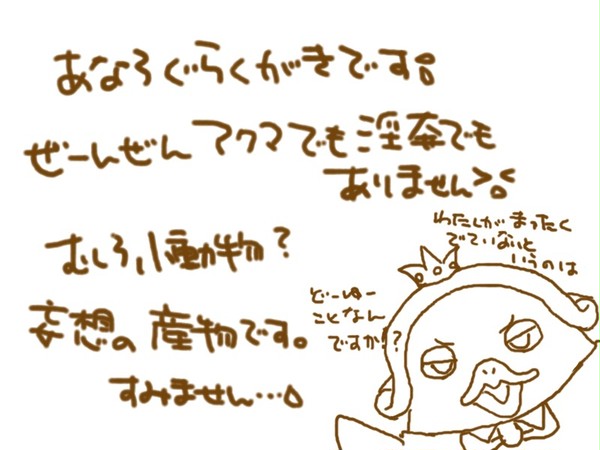 あなろぐらくがきです。
ぜーんぜんアクマでも淫奔でも
ありません>。<
むしろ小動物?
妄想の産物です。
すみません…。
わたしがまったく
でていないと
いうのは
どーゆー
ことなん
ですか!?